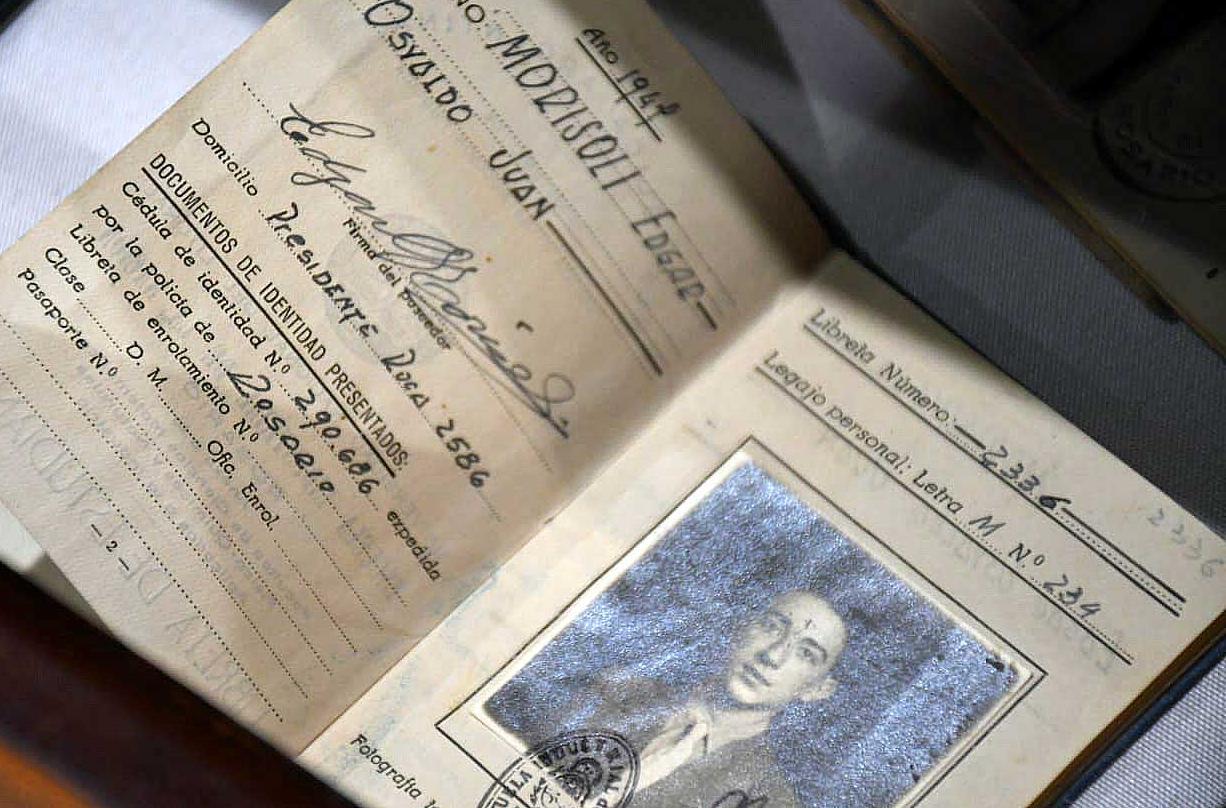 Año 1947
NO: MORISOLI EDGAR
OSVALDO JUAN
Firma del poseedor
Domicilio PRESIDENTE ROCA 2586
DOCUMENTOS DE IDENTIDAD PRESENTADOS:
Cédula de identidad N.º 290.686 expedida
por la policía de ROSARIO
Libreta de enrolamiento N.º
Clase D. M. Ofic. Enrol.
Pasaporte N.º
– 2 –
Libreta Número: 2336
2336
Legajo personal: Letra M N.º 234
Fotografía